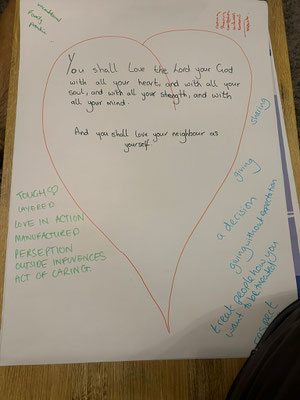 unconditional
Family
You shall Love the Lord your God
with all your heart, and with all your
soul, and with all your strength, and with
all your mind.
And you shall love your neighbour as
yourself.
TOUGH
LAYERED
LOVE IN ACTION
MANUFACTURED
PERSEPTION
OUTSIDE INFLUENCES
ACT OF CARING
sharing
giving
a decision
giving without expectation
treat people how you
want to be treated
RESPECT